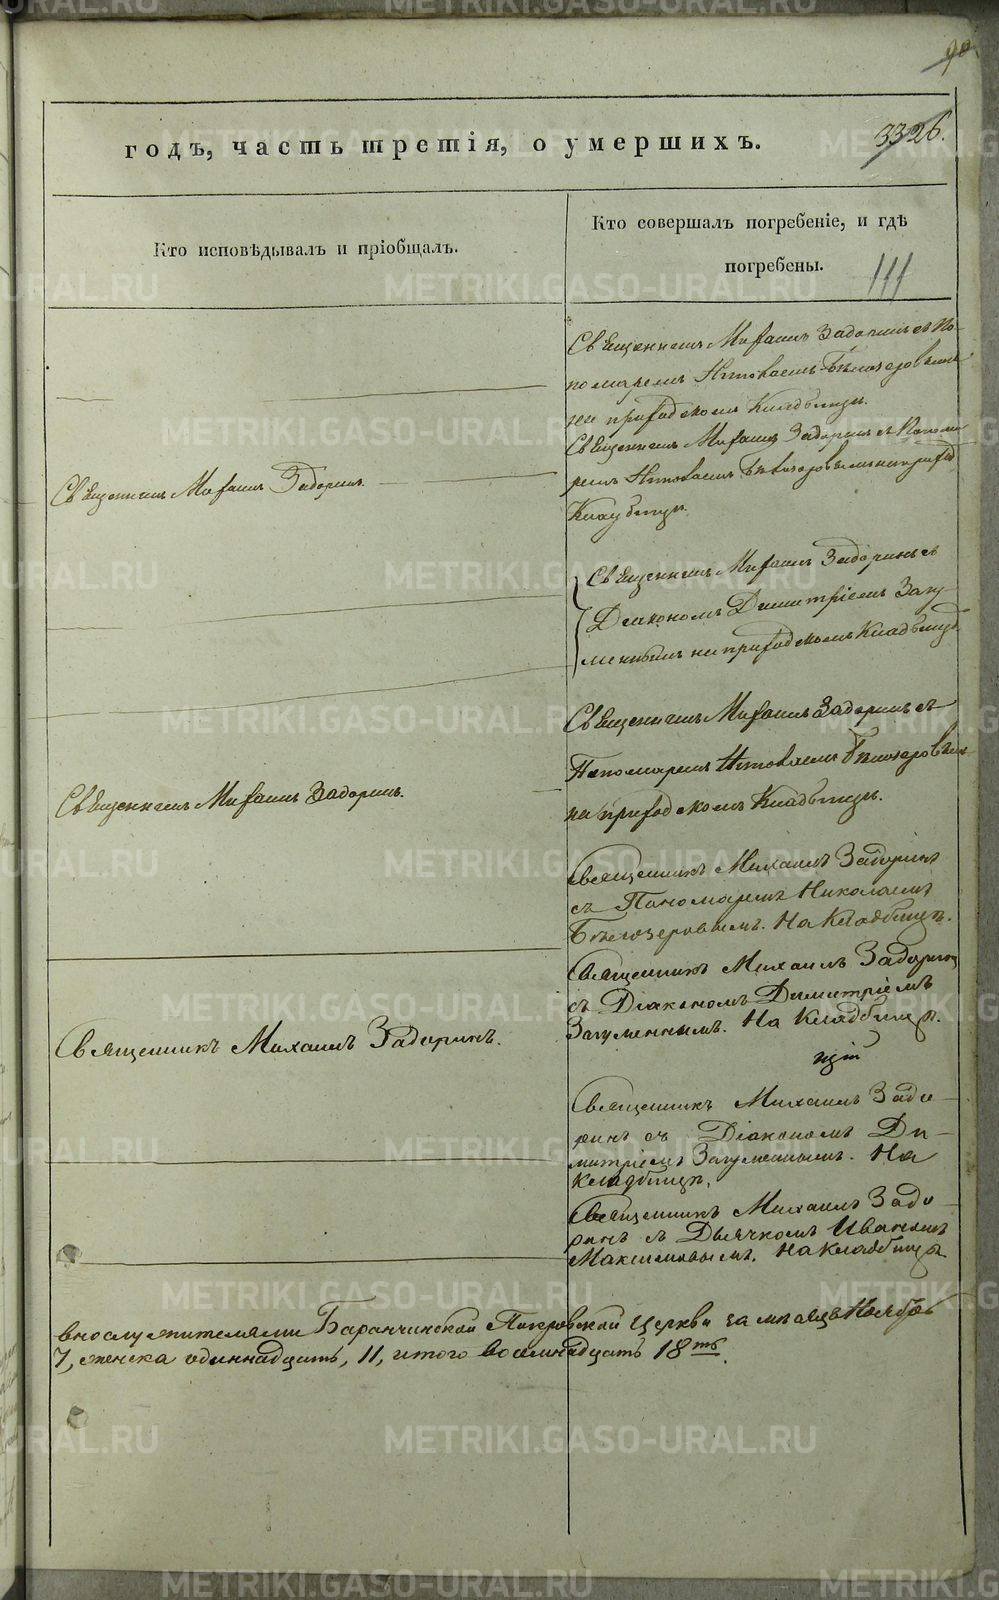 90
годъ, часть третія, о умершихъ.
3326.
Кто исповѣдывалъ и пріобщалъ.
Кто совершалъ погребеніе, и гдѣ
погребены.
111
Священникъ Михаилъ Задоринъ съ По-
номаремъ Николаемъ Бѣлозеровымъ
на приходскомъ Кладбищѣ.
Священникъ Михаилъ Задоринъ съ Понома
ремъ Николаемъ Бѣлозеровымъ на приход
Кладбищѣ.
Священникъ Михаилъ Задоринъ.
Священникъ Михаилъ Задоринъ съ
Діакономъ Димитріемъ Загу-
меннымъ на приходскомъ Кладбищѣ
Священникъ Михаилъ Задоринъ съ
Пономаремъ Николаемъ Бѣлозеровымъ
на приходскомъ Кладбищѣ.
Священникъ Михаилъ Задоринъ.
Священникъ Михаилъ Задоринъ
съ Пономаремъ Николаемъ
Бѣлозеровымъ. На Кладбищѣ.
Священникъ Михаилъ Задоринъ
съ Діакономъ Димитріемъ
Загуменнымъ. На Кладбищѣ.
Священникъ Михаилъ Задоринъ.
Священникъ Михаилъ Задо-
ринъ съ Діакономъ Ди-
митріемъ Загуменнымъ. На
кладбищѣ.
Священникъ Михаилъ Задо-
ринъ съ Дьячкомъ Иваномъ
Максимовымъ. На Кладбищѣ
вно служителями Баранчинской Покровской Церкви за мѣсяцъ Ноябрь
7, женска одиннадцать, 11, итого восемнадцать 18ть.
METRIKI.GASO-URAL.RU